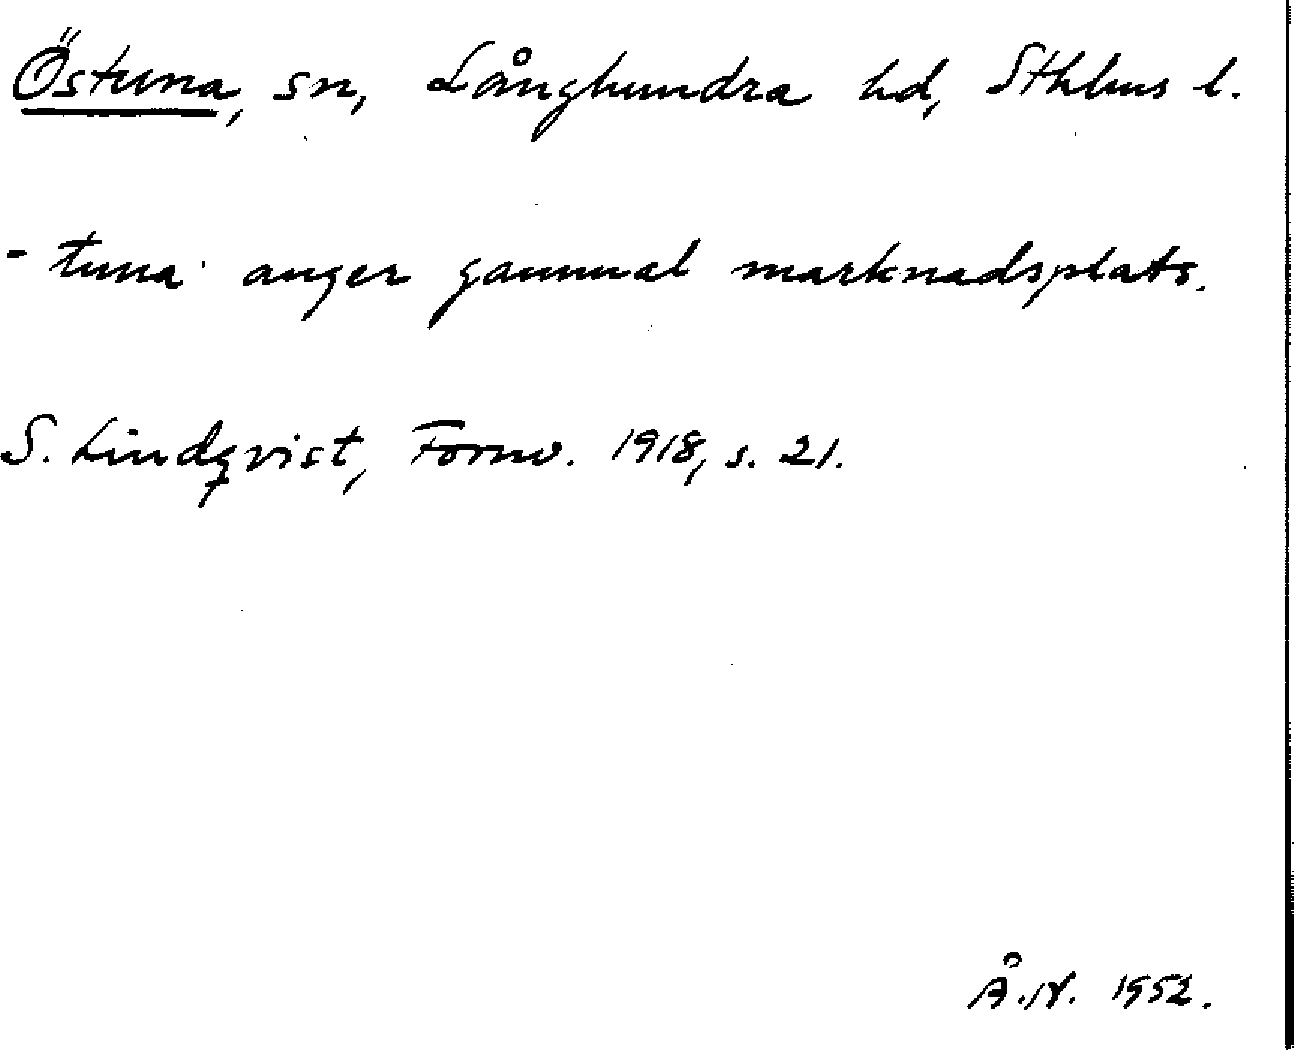 Östuna, sn, Långhundra hd, Sthlms l.
- tuna anger gammal marknadsplats.
S. Lindqvist, Fornv. 1918, s. 21.
Å.N. 1952.